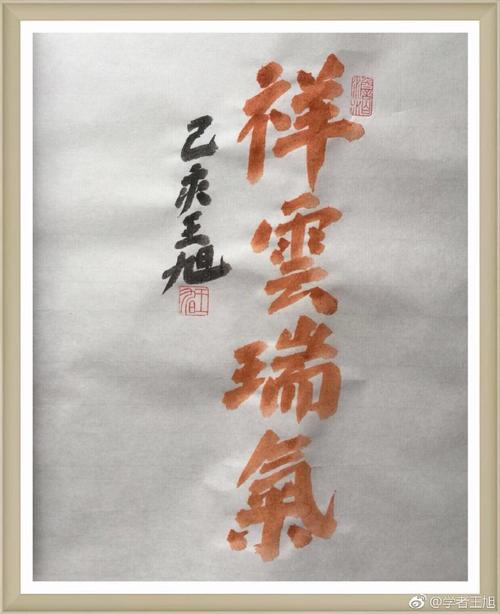 祥雲瑞氣
己亥王旭
@学者王旭